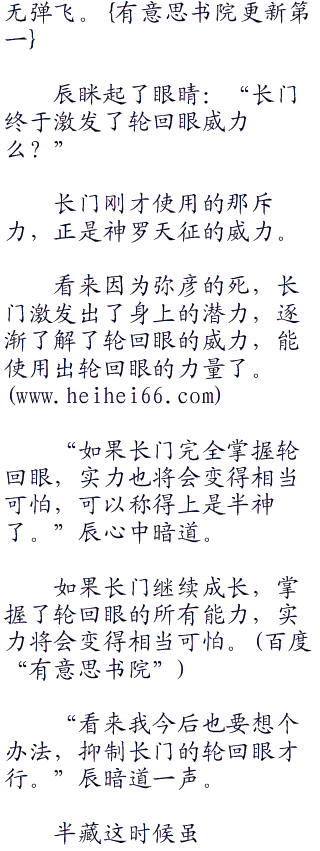 无弹飞。{有意思书院更新第
一}
辰眯起了眼睛：“长门
终于激发了轮回眼威力
么？”
长门刚才使用的那斥
力，正是神罗天征的威力。
看来因为弥彦的死，长
门激发出了身上的潜力，逐
渐了解了轮回眼的威力，能
使用出轮回眼的力量了。
(www.heihei66.com)
“如果长门完全掌握轮
回眼，实力也将会变得相当
可怕，可以称得上是半神
了。”辰心中暗道。
如果长门继续成长，掌
握了轮回眼的所有能力，实
力将会变得相当可怕。(百度
“有意思书院”)
“看来我今后也要想个
办法，抑制长门的轮回眼才
行。”辰暗道一声。
半藏这时候虽